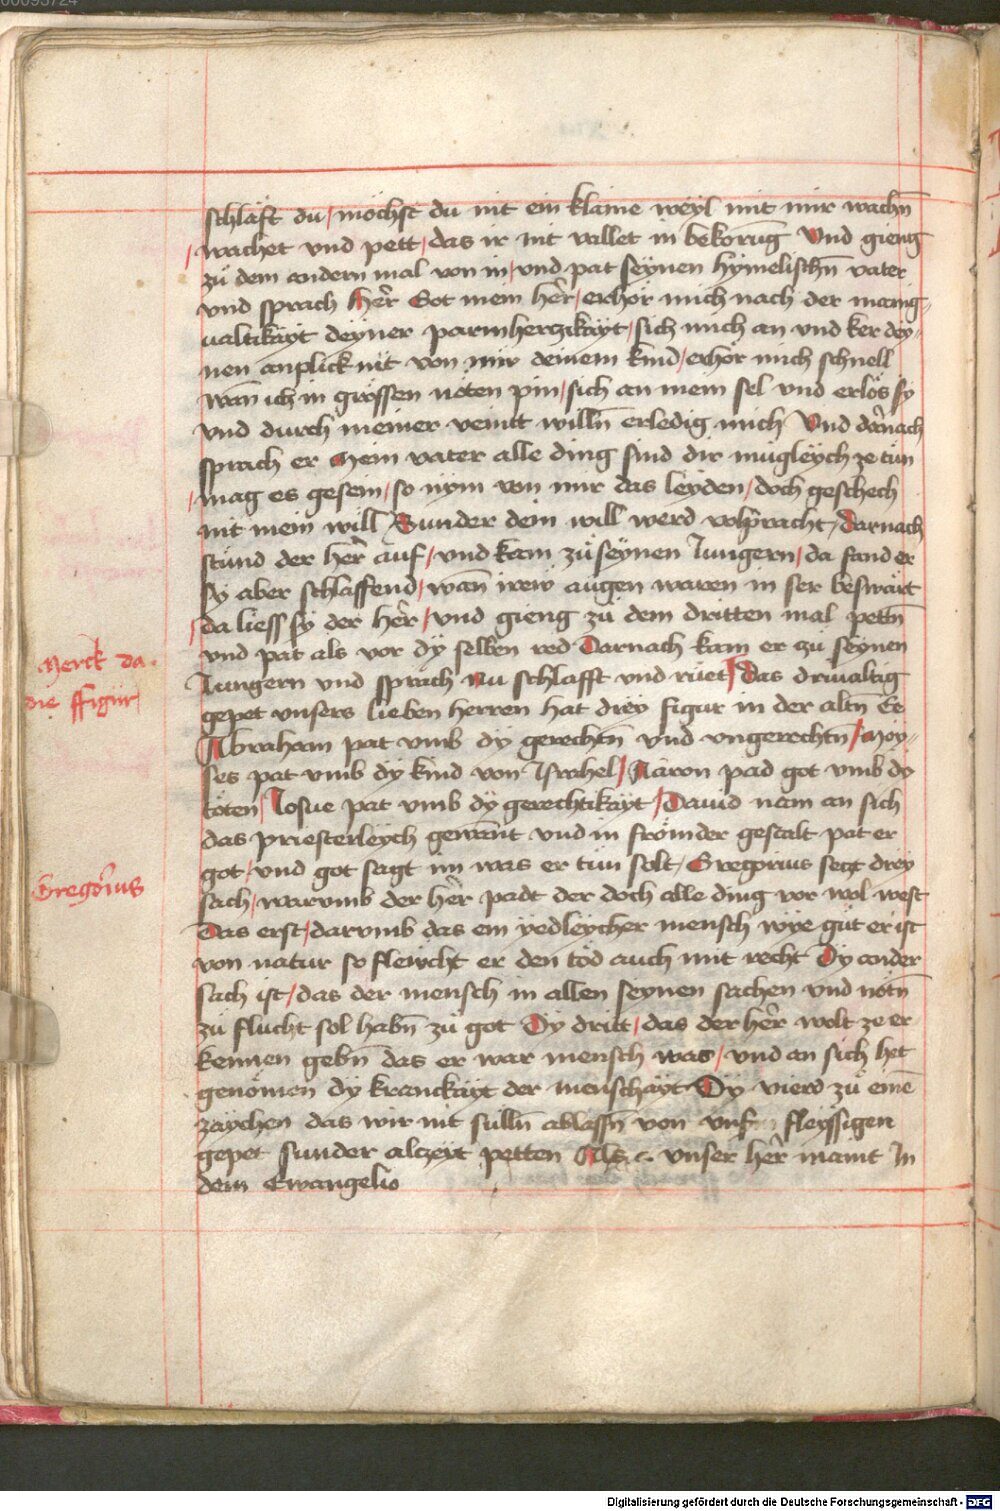 00093724
schlafft du / möchst du nit ein klaine weyl mit mir wachn̄
/ wachet vnd pett / das ir nit vallet in bekorūg Vnd gieng
zů dem andern mal von in / vnd pat seynen hymelischn̄ vater
vnd sprach Her̄ Got mein her̄ / erhör mich nach der manig¬
ualtikäyt deyner parmherczikäyt / sich mich an vnd ker dey¬
nen anplick nit von mir deinem kind / erhör mich schnell
wan̄ ich in grössen nöten pin / sich an mein sel vnd erlös sy
vnd durch meiner veintt willn̄ erledig mich Vnd dar̄nach
sprach er Mein vater alle ding sind dir mügleych ze tün
/ mag es gesein / so nym von mir das leyden / doch geschech
nit mein will Sunder dein will werd volpracht / Darnach
stünd der her̄ auf / vnd kam zů seynen Jungern / da fand er
sy aber schlaffend / wan̄ irew augen waren in ser beswärt
/ da liess sy der her̄ / vnd gieng zů dem dritten mal pettn̄
vnd pat als vor dy selben red Darnach kam er zů seynen
Jungern vnd sprach Nu schlafft vnd rüet / Das driualtig
gepet vnsers lieben herren hat drey figur in der altn̄ Ee
Abraham pat vmb dy gerechtn̄ vnd vngerechtn̄ / Moy¬
ses pat vmb dy kind von Israhel / Aaron pad got vmb dy
töten / Josue pat vmb dy gerechtikäyt / Dauid nam an sich
das priesterleych gewant vnd in frömder gestalt pat er
got / vnd got sagt im was er tün solt / Gregorius seczt drey
sach / warvmb der her̄ padt der doch alle ding vor wol west
Das erst / darvmb das ein yedleycher mensch wye güt er ist
von natur so flewcht er den tod auch mit recht Dy ander
sach ist / das der mensch in allen seynen sachen vnd nötn̄
zů flucht sol habn̄ zů got Dy dritt / das der her̄ wolt ze er
kennen gebn̄ das er war mensch was / vnd an sich het
genömen dy kranckäyt der menschäyt Dy vierd zů einē
zaychen das wir nit sülln̄ ablassn̄ von fleyssigen
gepet sunder alczeyt petten Als vnser her̄ maint In
dem Ewangelio
Merck da
die ffigür
Gregorius
Digitalisierung gefördert durch die Deutsche Forschungsgemeinschaft - DFG